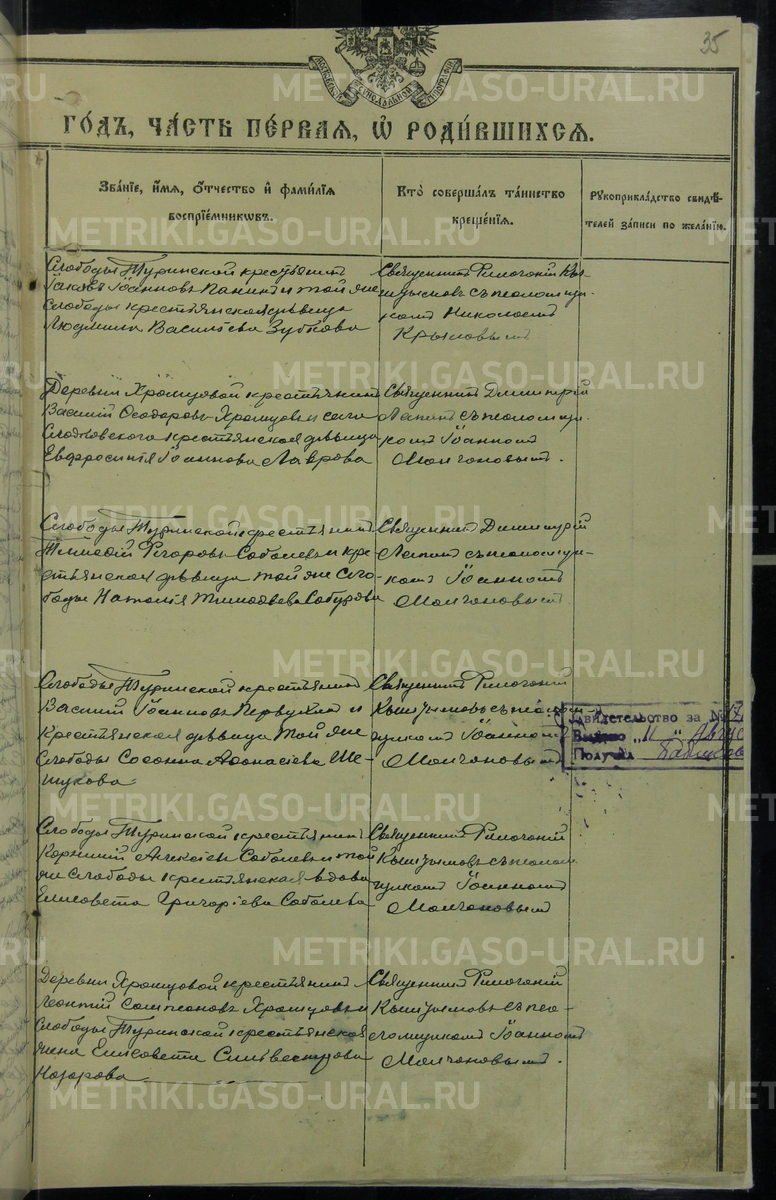 35
МОСКОВСКОЙ СѴНОДАЛЬНОЙ ТИПОГРАФІИ
ГО́ДЪ, ЧА́СТЬ ПЕ́РВАѦ, Ѡ҆ РОДИ́ВШИХСѦ.
Зва́нїе, и҆́мѧ, ѻ҆́тчество и҆ фами́лїѧ
воспрїе́мникѡвъ.
Кто̀ соверша́лъ та́инство
креще́нїѧ.
Рꙋкоприкла́дство свидѣ́-
телей за́писи по жела́нїю.
Слободы Туринской крестьянинъ
Іаковъ Іоанновъ Панинъ и той же
слободы крестьянская дѣвица
Людмила Василіева Зубкова
Священникъ Филогоній Кы-
штымовъ съ псаломщи-
комъ Николаемъ
Крыловымъ
Деревни Храмцовой крестьянинъ
Василій Ѳеодоровъ Храмцовъ и села
крестьянская дѣвица
Евфросинія Іоаннова Лаврова
Священникъ Димитрій
Лапинъ съ псаломщи-
комъ Іоанномъ
Молчановымъ.
Слободы Туринской крестьянинъ
Соболевъ и кре-
стьянская дѣвица той же сло-
боды Наталія Тимоѳеева Сабурова
Священникъ Димитрій
Лапинъ съ псаломщи-
комъ Іоанномъ
Молчановымъ
Слободы Туринской крестьянинъ
Василій Іоанновъ Первухинъ и
крестьянская дѣвица той же
слободы Аѳонасіева Ше-
Священникъ Филогоній
Кыштымовъ съ псалом-
щикомъ Іоанномъ
Молчановымъ
Свидетельство за №
Выдано „11" Авгус
Получил
Слободы Туринской крестьянинъ
Корнилій Алексіевъ Соболевъ и той
же слободы крестьянская вдова
Елисовета Григоріева Соболева
Священникъ Филогоній
Кыштымовъ съ псалом-
щикомъ Іоанномъ
Молчановымъ
Деревни Храмцовой крестьянинъ
Леонтій Сампсоновъ Храмцовъ и
слободы Туринской крестьянская
жена Елисовета Сильвестрова
Назарова
Священникъ Филогоній
Кыштымовъ съ пса-
ломщикомъ Іоанномъ
Молчановымъ.
METRIKI.GASO-URAL.RU